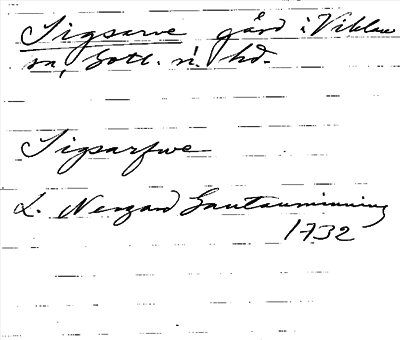 Sigsarve gård i Viklau
sn, Gotl. n. hd.
Sigsarfwe
L. Neogard Gautauminning
1732